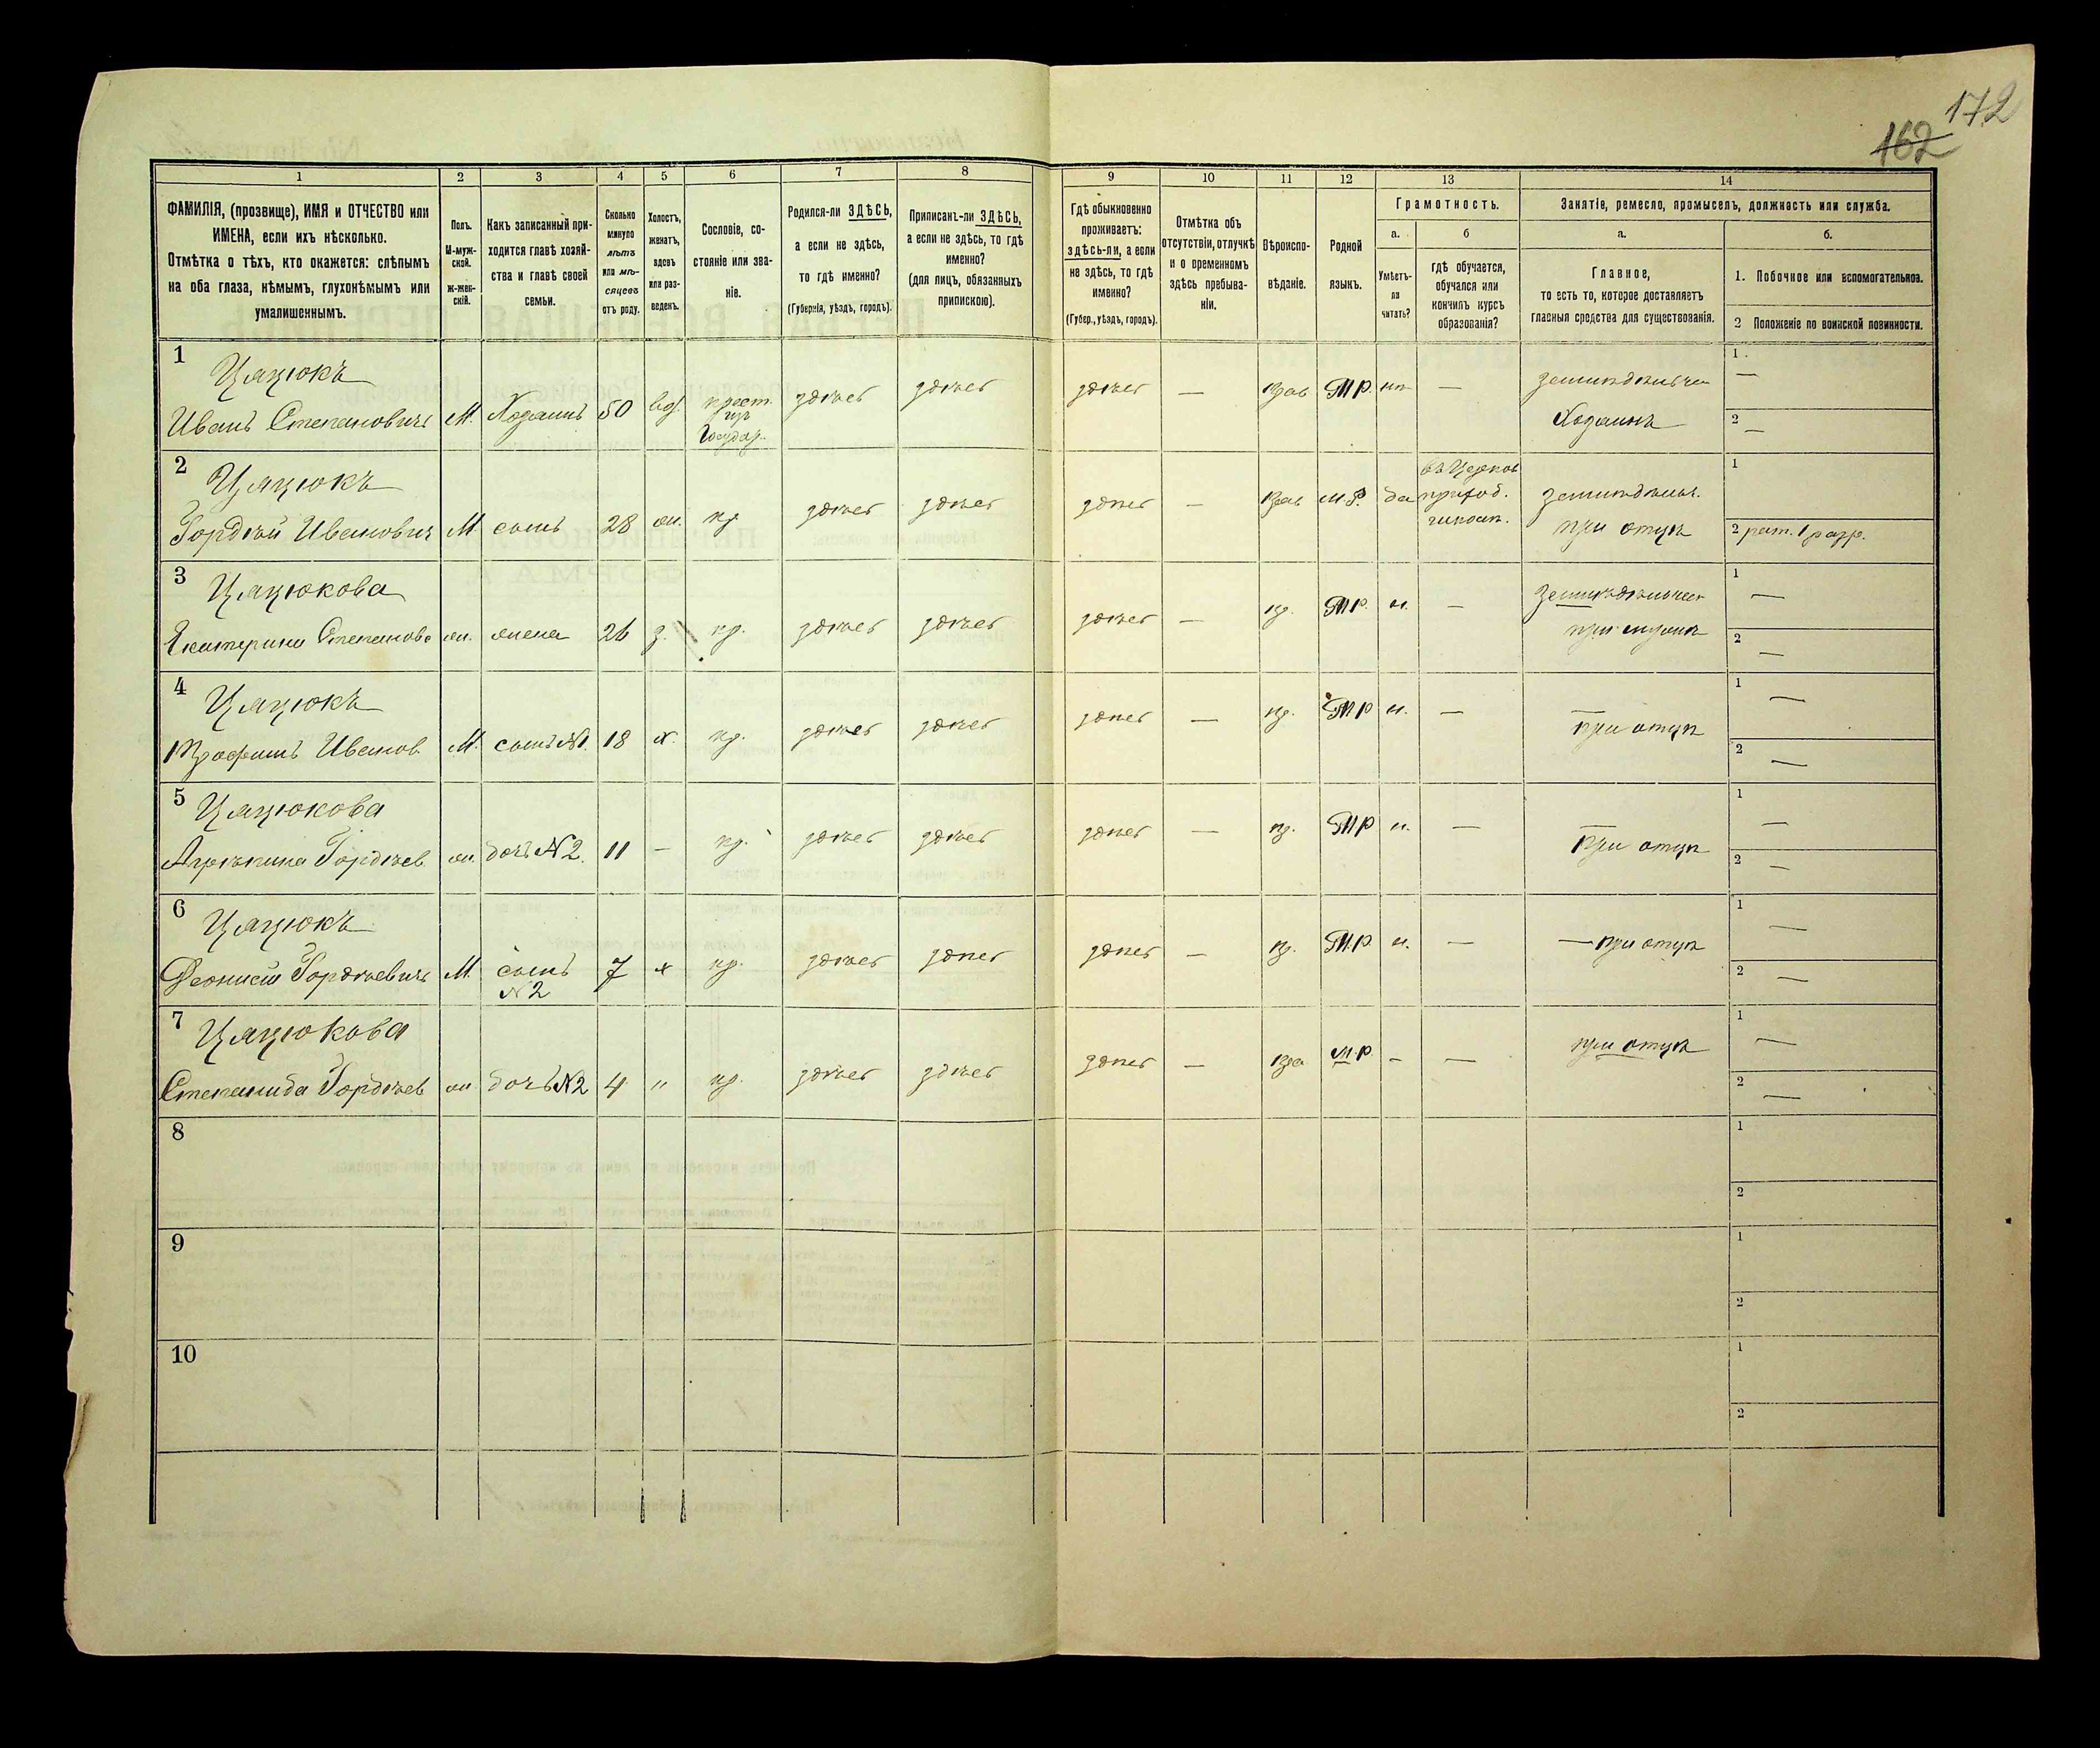 172
162
1 2 3 4 5 6 7 8 9 10 11 12 13 14
ФАМИЛІЯ, (прозвище), ИМЯ и ОТЧЕСТВО или
ИМЕНА, если ихъ нѣсколько.
Отмѣтка о тѣхъ, кто окажется: слѣпымъ
на оба глаза, нѣмымъ, глухонѣмымъ или
умалишеннымъ.
Полъ.
М-муж-
ской.
ж-жен-
скій.
Какъ записанный при-
ходится главѣ хозяй-
ства и главѣ своей
семьи.
Сколько
минуло
лѣтъ
или мѣ-
сяцевъ
отъ роду.
Холостъ,
женатъ,
вдовъ
или раз-
веденъ.
Сословіе, со-
стояніе или зва-
ніе.
Родился-ли ЗДѢСЬ,
а если не здѣсь,
то гдѣ именно?
(Губернія, уѣздъ, городъ).
Приписанъ-ли ЗДѢСЬ,
а если не здѣсь, то гдѣ
именно?
(для лицъ, обязанныхъ
припискою).
Гдѣ обыкновенно
проживаетъ:
здѣсь-ли, а если
не здѣсь, то гдѣ
именно?
(Губер., уѣздъ, городъ).
Отмѣтка объ
отсутствіи, отлучкѣ
и о временномъ
здѣсь пребыва-
ніи.
Вѣроиспо-
вѣданіе.
Родной
языкъ.
Грамотность.
а.
Умѣетъ-
ли
читать?
б
гдѣ обучается,
обучался или
кончилъ курсъ
образованія?
Занятіе, ремесло, промыселъ, должность или служба.
а.
Главное,
то есть то, которое доставляетъ
главныя средства для существованія.
б.
1. Побочное или вспомогательное.
2 Положеніе по воинской повинности.
1
Цяцюкъ
Иванъ Степановичъ М. Хозяинъ 50 вд.
крест.
изъ
Государ.
здѣсь здѣсь здѣсь — Прав М.Р. нѣ —
Хозяинъ
1 —
2 —
2
Цяцюкъ
Гордѣй Ивановичъ М сынъ 28 жн. кр. здѣсь здѣсь здѣсь — Прав М.Р. да
въ Церков
приход.
при отцѣ
1
2 рат. 1 разр.
3
Цяцюкова
Екатерина Степанова жн. жена 26 з. кр. здѣсь здѣсь здѣсь — пр. М.Р. н. —
1 —
2 —
4
Цяцюкъ
Трофимъ Иванов М. сынъ №1. 18 х. кр. здѣсь здѣсь здѣсь — пр. М.Р н. —
—
при отцѣ
1 —
2 —
5
Цяцюкова
Агрѣпина Гордѣев жн. дочь №2. 11 — кр. здѣсь здѣсь здѣсь — пр. М.Р н. —
—
при отцѣ
1 —
2 —
6
Цяцюкъ
Деонисій Гордѣевичъ М.
сынъ
№2
7 х кр. здѣсь здѣсь здѣсь — пр. М.Р н. — — при отцѣ
1 —
2 —
7
Цяцюкова
Степанида Гордѣев жн дочь №2 4 " кр. здѣсь здѣсь здѣсь — пра М.Р. – — при отцѣ
1 —
2 —
8
1
2
9
1
2
10
1
2